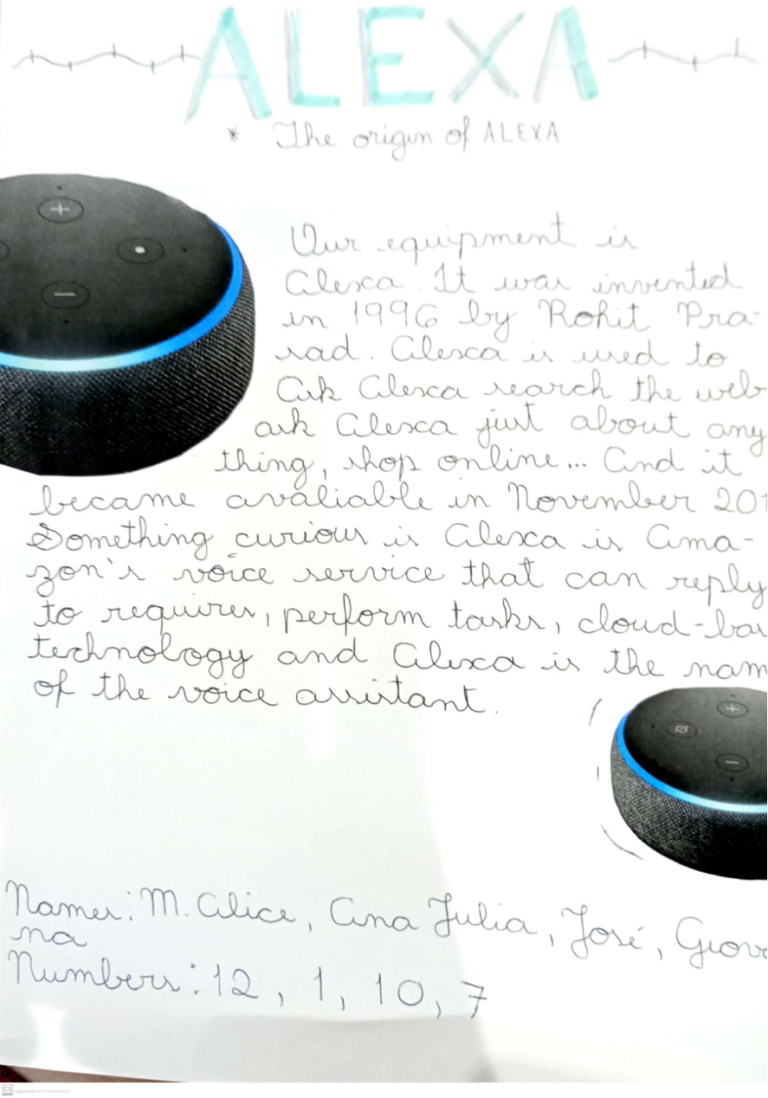 ALEXA
* The origin of ALEXA
Our equipment is
Alexa. It was invented
in 1996 by Rohit Pra-
sad. Alexa is used to
Ask Alexa search the web
ask Alexa just about any
thing, shop online... And it
became avaliable in November 201
Something curious is Alexa is Ama-
zon's voice service that can reply
to requires, perform tasks, cloud-bas
technology and Alexa is the nam
of the voice assistant.
Names: M. Alice, Ana Julia, José, Giov
na
Numbers: 12, 1, 10, 7
CS